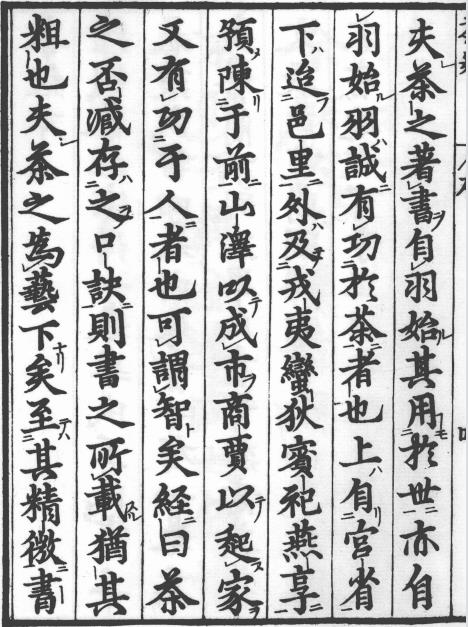 夫茶之著書自羽始其用於世亦自
羽始羽誠有功於茶者也上自宮省
下迨邑里外及戎夷蠻狄賓祀燕享
預陳于前山澤以成市商賈以起家
又有功于人者也可謂智矣経曰茶
之否臧存之口訣則書之所載猶其
粗也夫茶之為藝下矣至其精微書